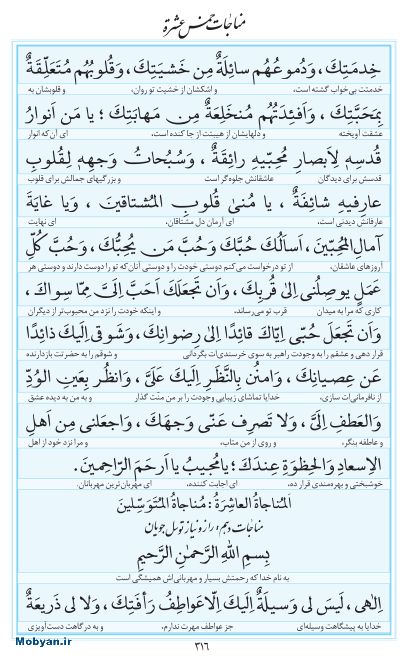 مناجات خمس عشرة
خِدمَتِكَ، وَدُموعُهُم سائِلَةٌ مِن خَشيَتِكَ، وَقُلوبُهُم مُتَعَلِّقَةٌ
خدمتت بی‌خواب گشته است، و اشکشان از خشیت تو روان، و قلوبشان به
بِمَحَبَّتِكَ، وَاَفئِدَتُهُم مُنخَلِعَةٌ مِن مَهابَتِكَ؛ يا مَن اَنوارُ
عشقت آویخته و دلهایشان از هیبتت از جا کنده است. ای آن‌که انوار
قُدسِهِ لِاَبصارِ مُحِبّيهِ رائِقَةٌ، وَسُبُحاتُ وَجهِهِ لِقُلوبِ
قدسش برای دیدگان عاشقانش جلوه‌گر است و بزرگیهای جمالش برای قلوب
عارِفيهِ شائِفَةٌ، يا مُنىٰ قُلوبِ المُشتاقينَ، وَيا غايَةَ
عارفانش دیدنی است. ای آرمان دل مشتاقان. ای نهایت
آمالِ المُحِبّينَ، اَسأَلُكَ حُبَّكَ وَحُبَّ مَن يُحِبُّكَ، وَحُبَّ كُلِّ
آرزوهای عاشقان، از تو درخواست می‌کنم دوستی خودت را و دوستی آنان‌که تو را دوست دارند و دوستی هر
عَمَلٍ يوصِلُنى اِلىٰ قُربِكَ، وَاَن تَجعَلَكَ اَحَبَّ اِلَىَّ مِمّا سِواكَ،
کاری که مرا به میدان قرب تو می‌رساند. و اینکه خودت را نزد من محبوب‌تر از دیگران
وَاَن تَجعَلَ حُبّى اِيّاكَ قائِدًا اِلىٰ رِضوانِكَ، وَشَوقى اِلَيكَ ذائِدًا
قرار دهی و عشقم را به وجودت راهبر به سوی خرسندی‌ات بگردانی و شوقم را به حضرتت بازدارنده
عَن عِصيانِكَ، وَامنُن بِالنَّظَرِ اِلَيكَ عَلَىَّ، وَانظُر بِعَينِ الوُدِّ
از نافرمانی‌ات سازی، خدایا تماشای زیبایی وجودت را بر من منت گذار و به من به دیده عشق
وَالعَطفِ اِلَىَّ، وَلا تَصرِف عَنّى وَجهَكَ، وَاجعَلنى مِن اَهلِ
و عاطفه بنگر، و روی از من متاب، و مرا نزد خود از اهل
الاِسعادِ وَالحِظوَةِ عِندَكَ؛ يا مُجيبُ يا اَرحَمَ الرّاحِمينَ.
خوشبختی و بهره‌مندی قرار ده، ای اجابت کننده، ای مهربان‌ترین مهربانان.
اَلمُناجاةُ العاشِرَةُ: مُناجاةُ المُتَوَسِّلينَ
مناجات دهم: راز و نیاز توسل جویان
بِسمِ اللهِ الرَّحمٰنِ الرَّحيمِ
به نام خدا که رحمتش بسیار و مهربانی‌اش همیشگی است
اِلٰهى، لَيسَ لى وَسيلَةٌ اِلَيكَ اِلّا عَواطِفُ رَأفَتِكَ، وَلا لى ذَريعَةٌ
خدایا به پیشگاهت وسیله‌ای جز عواطف مهرت ندارم. و به درگاهت دست‌آویزی
Mobyan.ir
۳۱۶